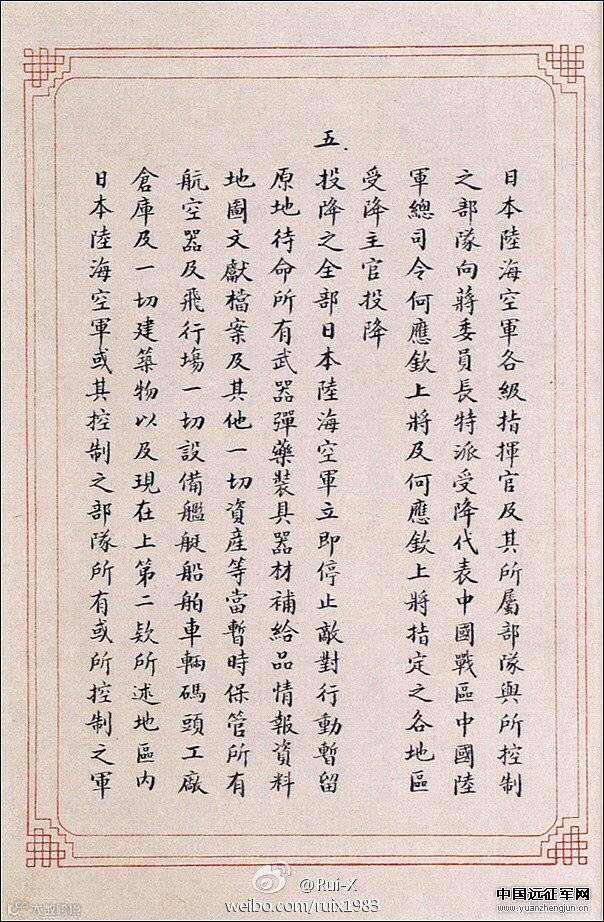 日本陸海空軍各級指揮官及其所屬部隊與所控制
之部隊向蔣委員長特派受降代表中國戰區中國陸
軍總司令何應欽上將及何應欽上將指定之各地區
受降主官投降
五.
投降之全部日本陸海空軍立即停止敵對行動暫留
原地待命所有武器彈藥裝具器材補給品情報資料
地圖文獻檔案及其他一切資產等當暫時保管所有
航空器及飛行場一切設備艦艇船舶車輛碼頭工廠
倉庫及一切建築物以及現在上第二款所述地區內
日本陸海空軍或其控制之部隊所有或所控制之軍
@Rui-X
weibo.com/ruix1983
中国远征军网
www.yuanzhengjun.cn